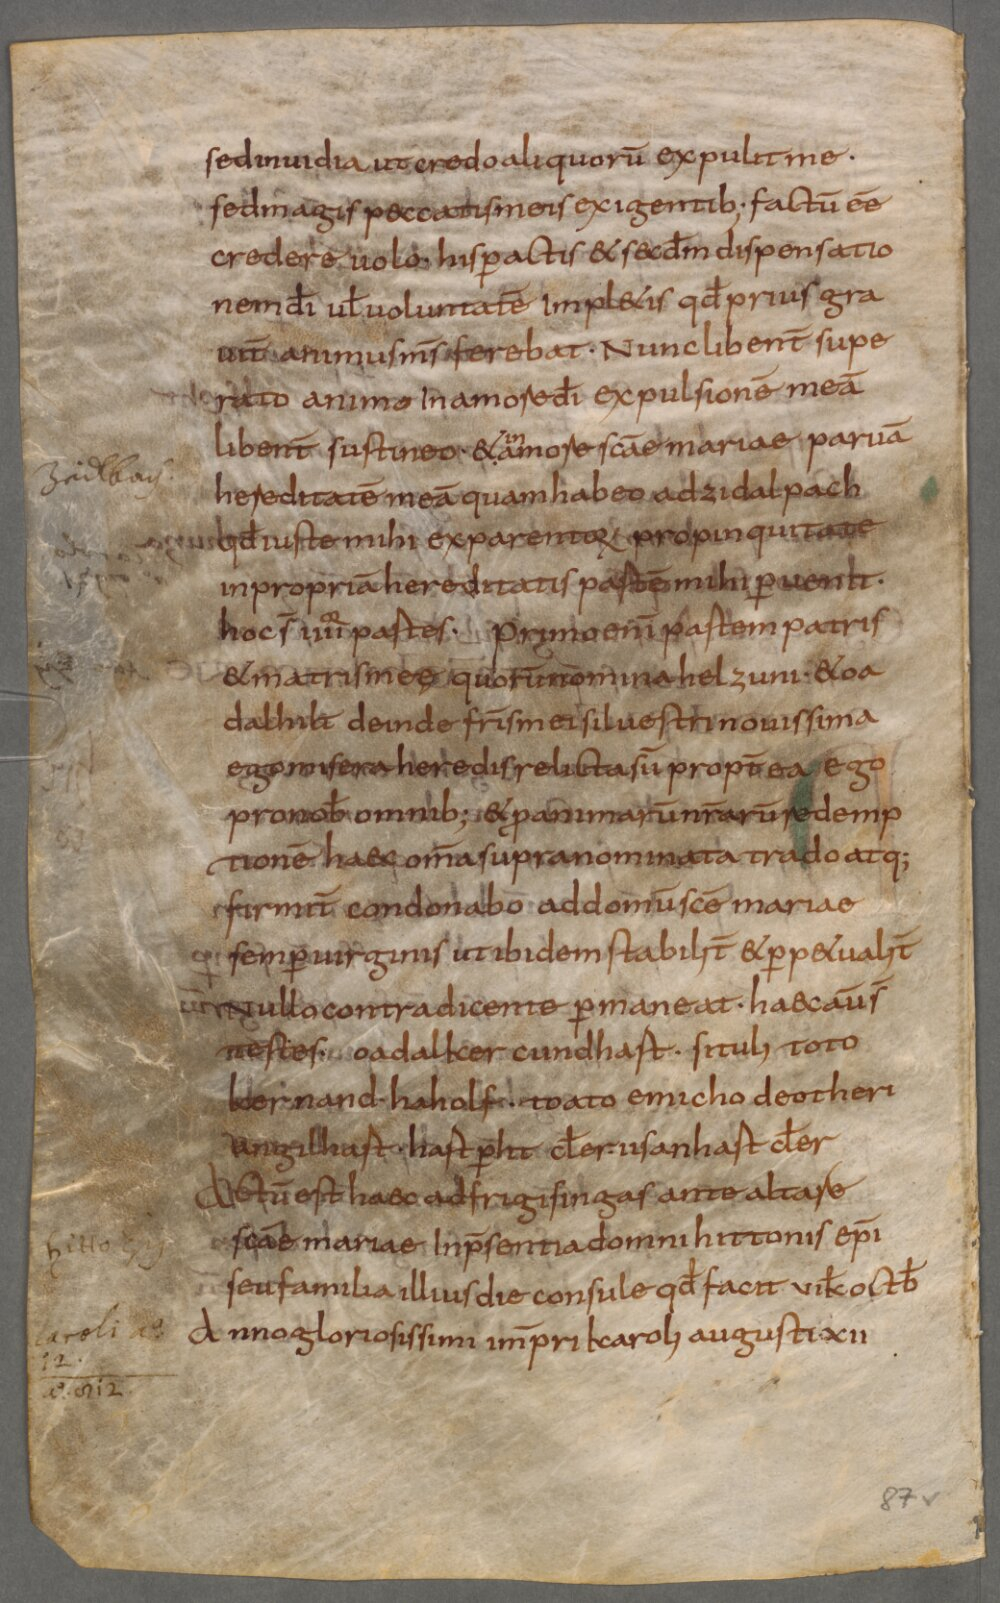 sed inuidia ut credo aliquorū expulit me·
sed magis peccatis meis exigentib; factū ēē
credere uolo· his pactis & secđm dispensatio
nem đi uł uoluntatē Impletis qđ prius gra
uit̄ animus m̄s ferebat· Nunc libent̄ supe
rato animo In amore đi expulsionē meā
libent̄ sustineo· & in amore scāe mariae paruā
Zeidlbach.
hereditatē meā quam habeo ad zidalpach
qđ iuste mihi ex parentoꝝ propinquitate
in propriā hereditatis partē mihi ꝑuenit·
hoc s̄ iiii partes· Primo eni̅ partem patris
& matris meę quorū nomina helzuni· & oa
dalhilt deinde fr̄is mei siluestri nouissima
ego misera heredis relicta sū propt̄ ea ego
pro nob̄ omnib; & ꝑ animarū nr̄arū redemp
tionē haec om̄a supranominata trado atq;
firmit̄ condonabo ad domū scē mariae
semꝑ uirginis ut ibidem stabilit̄ & ꝑpetualit̄
Nullo contradicente ꝑmaneat· haec aūs̄
testes· oadalker cundhart· situli toto
kernand· haholf· toato emicho deotheri
Angilhart· hartꝑht cłer· usanhart cłer
Actū est haec ad frigisingas ante altare
scāe mariae In p̄sentia domni hittonis ep̄i
hitto
seu familia illius die consule qđ facit vi k̄ octb̄
caroli aō
12.
Anno gloriosissimi im̄pri karoli augusti xii
aō. 812.
87v